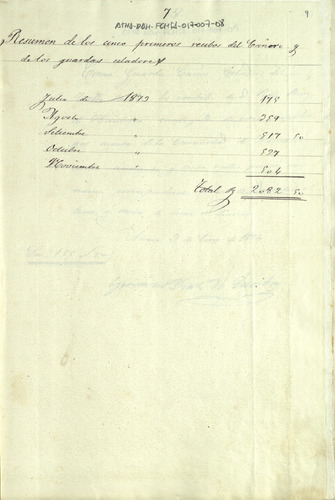 7
9
ATHA-DAH-FCHIZ-017-007-08
Resumen de los cinco primeros recibos del Cañero y
de los guardas celadores
Julio de 1873 175
Agosto " 359
Setiembre " 517 50
Octubre " 527
Noviembre " 504
Total 2082 50